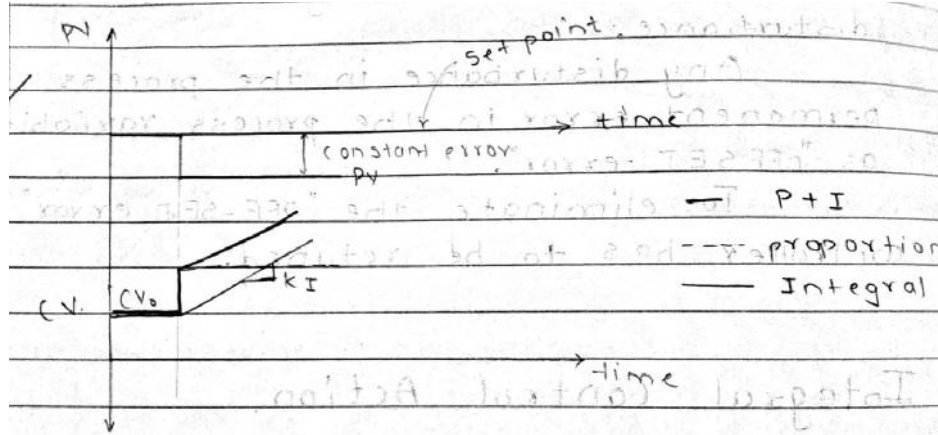 PV
set point.
time
constant error
PV
P + I
proportion
KI
Integral
CV.
CV₀
time